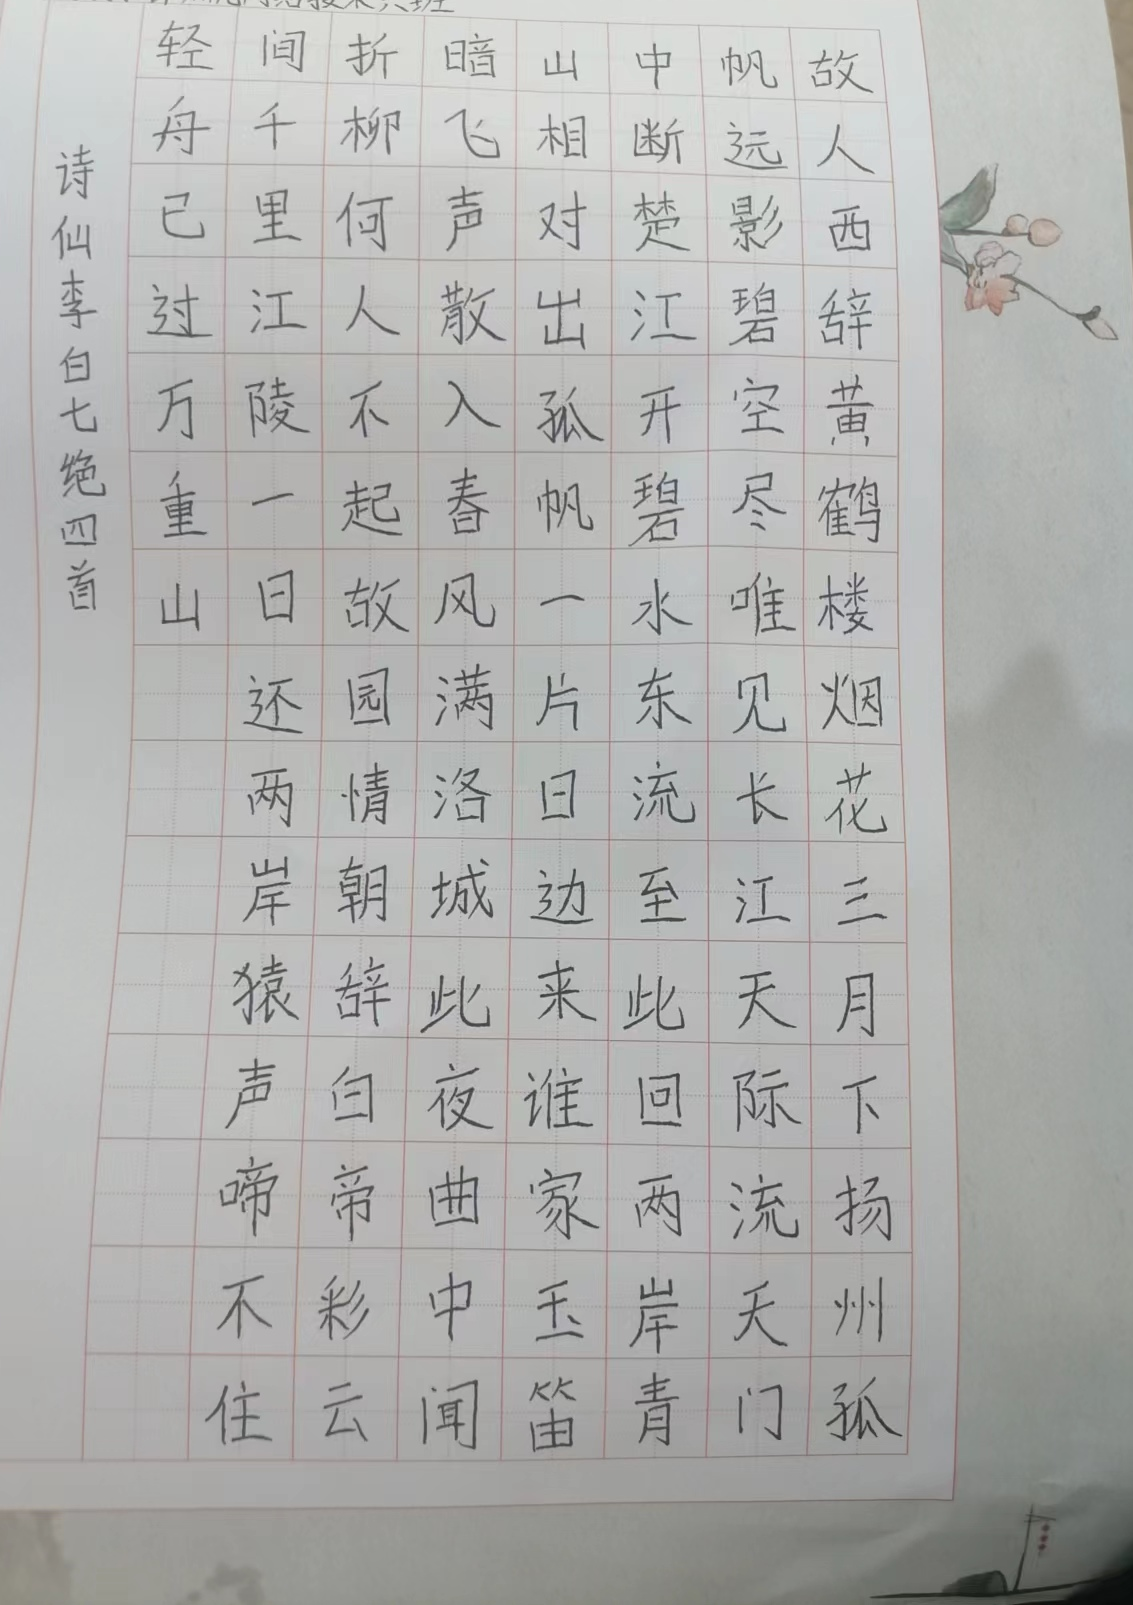 故人西辞黄鹤楼烟花三月下扬州孤
帆远影碧空尽唯见长江天际流天门
中断楚江开碧水东流至此回两岸青
山相对出孤帆一片日边来谁家玉笛
暗飞声散入春风满洛城此夜曲中闻
折柳何人不起故园情朝辞白帝彩云
间千里江陵一日还两岸猿声啼不住
轻舟已过万重山
诗仙李白七绝四首